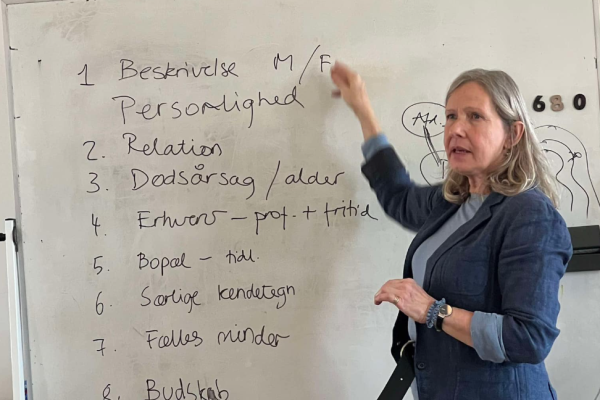 1 Beskrivelse M/F
Personlighed
2. Relation
3. Dødsårsag / alder
4. Erhverv - prof. + fritid
5. Bopæl - tidl.
6. Særlige kendetegn
7. Fælles minder
8. Budskab
Afd.
680